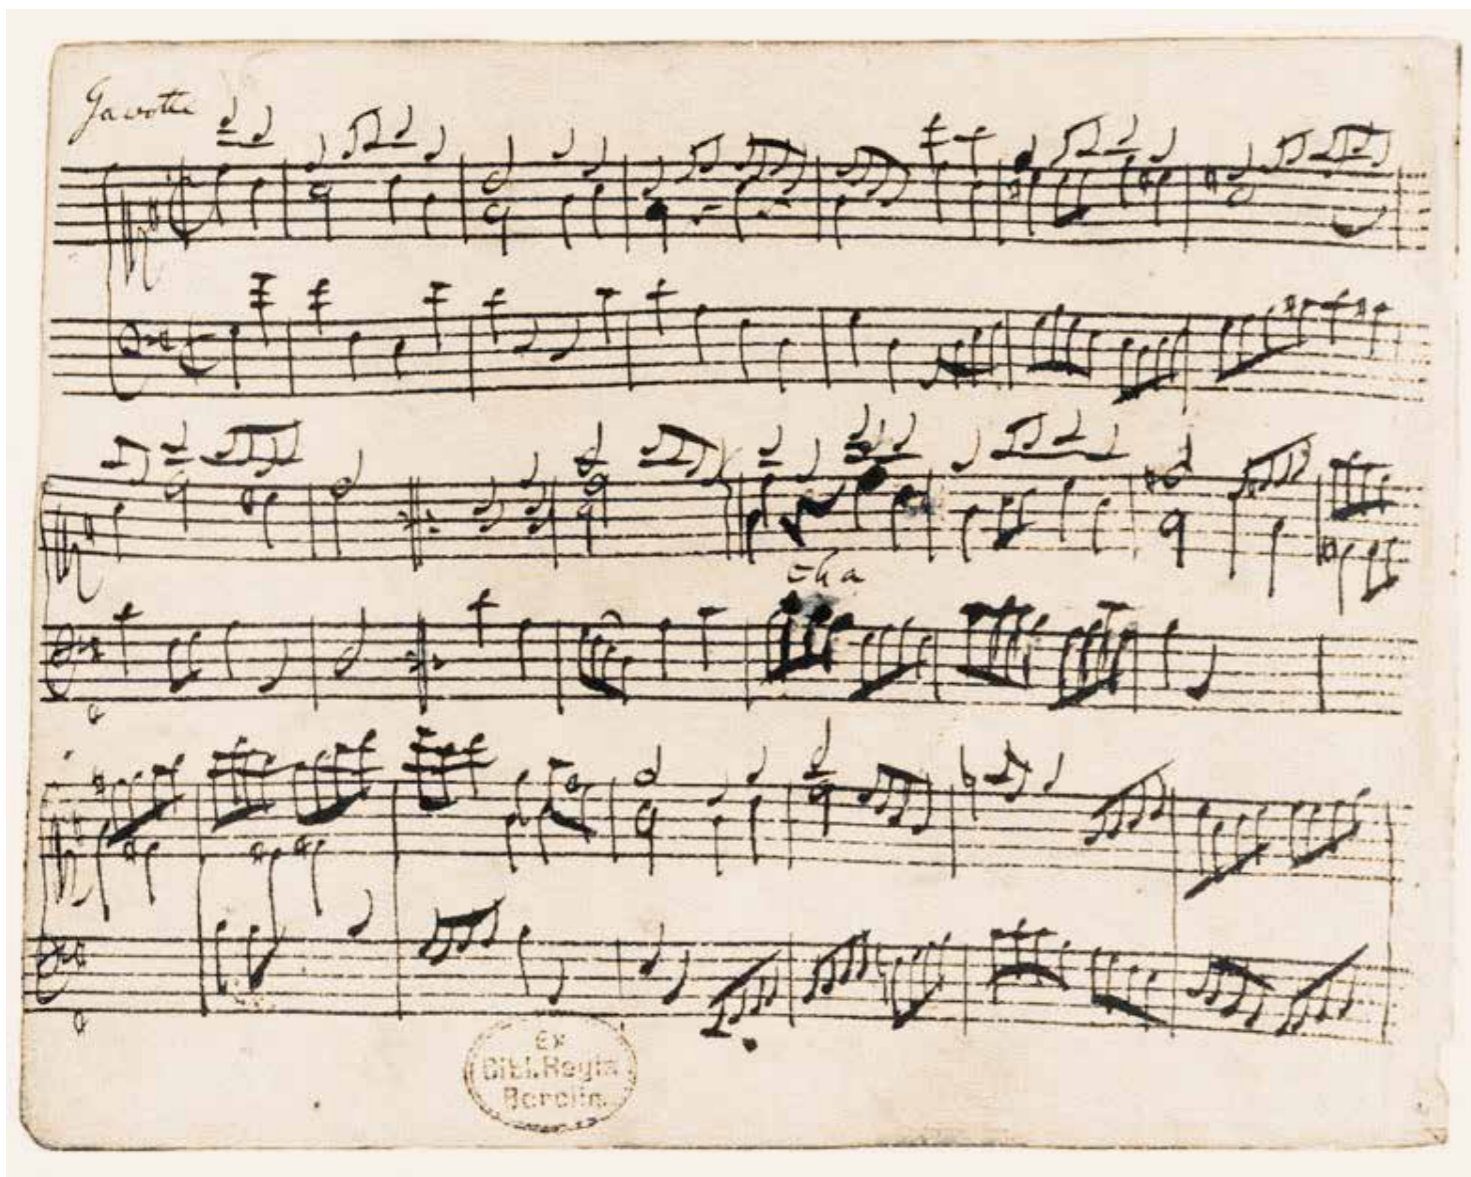 Gavotte
cha
Ex
Bibl. Regia
Berolin.